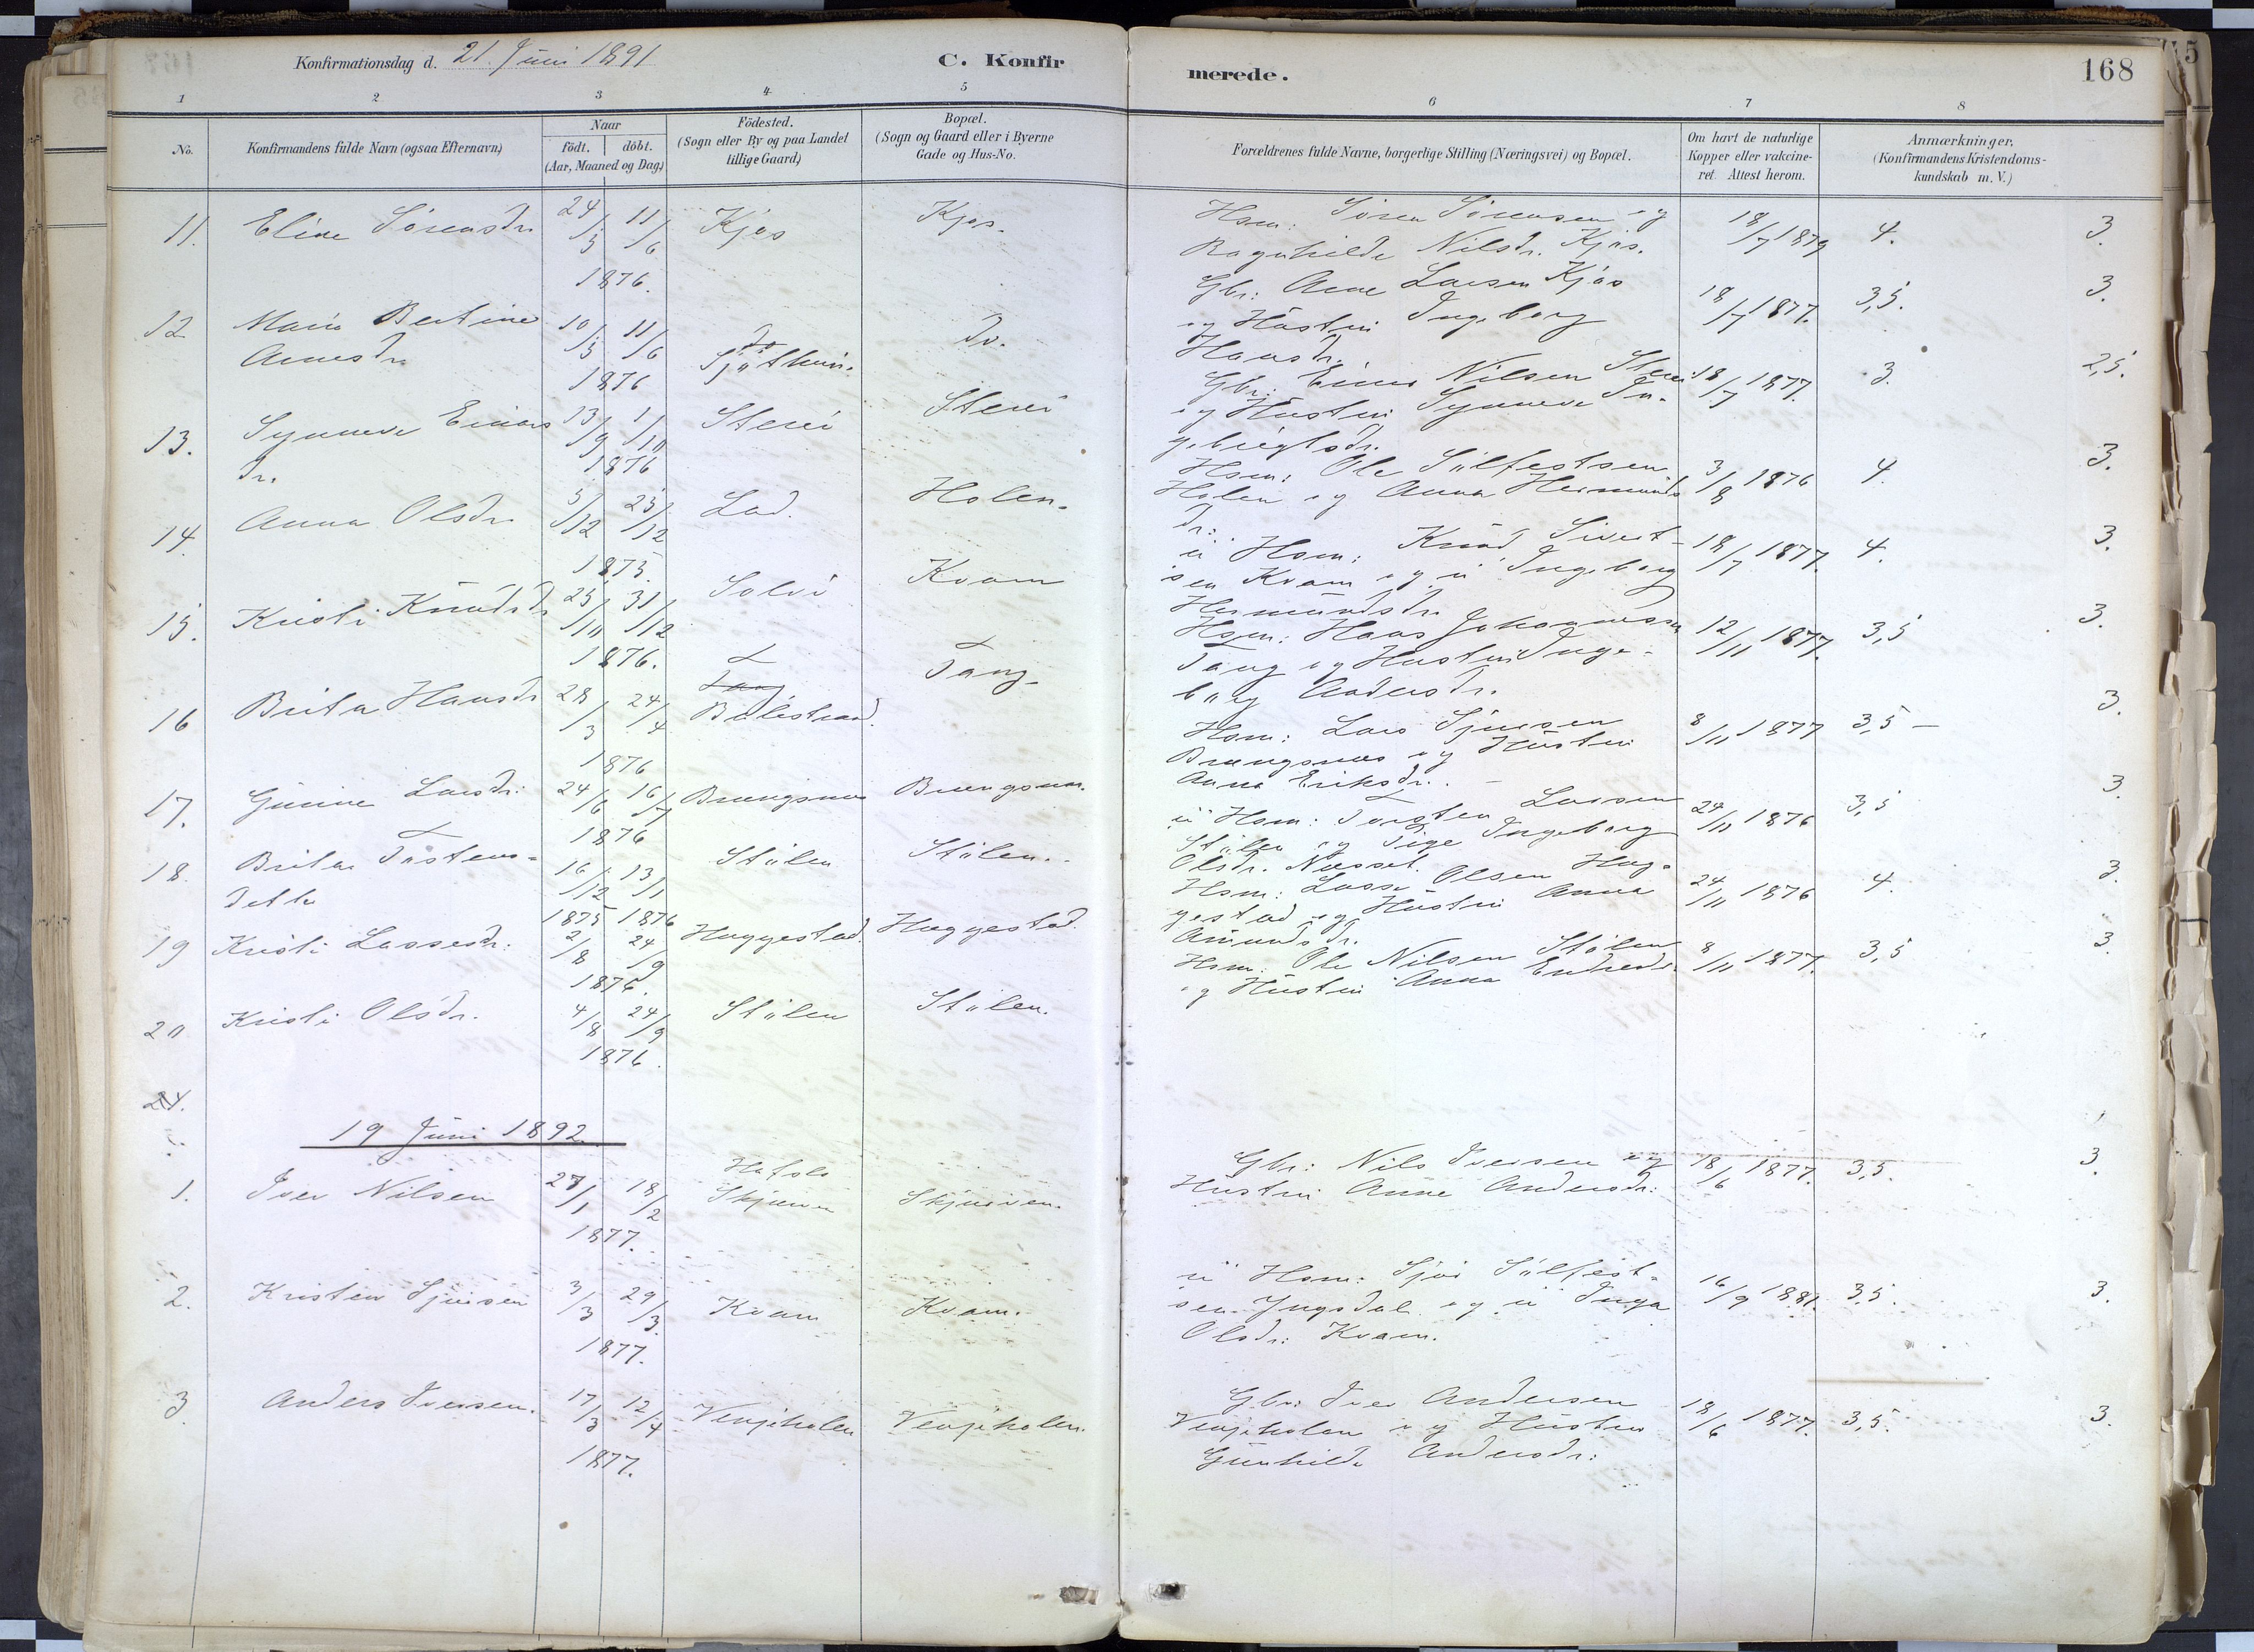 Konfirmationsdag d. 21. Juni 1891
C. Konfirmerede.
168
1 2 3 4 5 6 7 8
No.
Konfirmandens fulde Navn (ogsaa Efternavn)
Naar
födt. döbt.
(Aar, Maaned og Dag.)
Födested.
(Sogn eller By og paa Landet
tillige Gaard)
Bopæl.
(Sogn og Gaard eller i Byerne
Gade og Hus-No.
Forældrenes fulde Navne, borgerlige Stilling (Næringsvei) og Bopæl.
Om havt de naturlige
Kopper eller vakcine-
ret. Attest herom.
Anmærkninger,
(Konfirmandens Kristendoms-
kundskab m. V.)
11. Eline Sörensdr. 24/5 11/6 Kjøs Kjøs.
1876.
Hsm: Sören Sörensen og 18/7 1879 4. 3.
Ragnhilde Nilsdr. Kjøs.
12 Maria Bertine 10/5 11/6 do Do.
Arnesdr. 1876
Gbr: Arne Larsen Kjøs 18/7 1877. 3,5. 3.
og Hustru Ingeborg
Hansdr.
13. Synneve Einars 13/9 1/10 Sterri Sterri
dr. 1876
Gbr: Einar Nilsen Sterri 18/7 1877. 3. 2,5.
og Hustru Synneve In-
gebrigtsdr.
14. Anna Olsdr. 5/12 25/12 Lad. Holen.
1875.
Hsm: Ole Sülfestsen 3/8 1876 4. 3.
Holen og Anna Hermunds
dr.
15. Kristi Knudsdr. 25/11 31/12 Solvi Kvam
1876.
u Hsm: Knud Sivert- 18/7 1877. 4. 3.
sen Kvam og u Ingeborg
Hermundsdr.
16 Brita Hansdr. 28/3 24/4 Tang Balestrand. Tang.
1876
Hsm: Hans Johannessen 12/11 1877. 3,5 3.
Tang og Hustru Inge-
borg Andersdr.
17. Gurine Larsdr: 24/6 16/7 Brungsnæs Brungsnæs.
1876
Hsm: Lars Sjursen 8/11 1877 3,5 — 3.
Brungsnæs og Hustru
Anna Eriksdr. —
18. Brita Tostens- 16/12 13/1 Stölen Stölen.
datter 1875 1876
u Hsm: Torsten Larsen 24/11 1876 3,5 3.
Stölen og Pige Ingeborg
Olsdr. Næsset.
19 Kristi Lassesdr: 2/8 24/9 Huggestad. Huggestad.
1876.
Hsm: Lasse Olsen Hug- 24/11 1876 4. 3.
gestad og Hustru Anna
Amundsdr.
20 Kristi Olsdr. 4/8 24/9 Stölen Stölen.
1876.
Hsm. Ole Nilsen Stölen 8/11 1877. 3,5 3.
og Hustru Anna Endredr.
21.
19 Juni 1892.
1. Iver Nilsen 27/1 18/2 Hafslo Skjurven Skjurven.
1877.
Gbr: Nils Iversen og 18/6 1877. 3,5. 3.
Hustru Anne Andersdr:
2. Kristen Sjursen 3/3 29/3. Kvam Kvam.
1877.
u Hsm: Sjur Sülfest- 16/9 1881. 3,5. 3.
sen Yngsdal og u Inga
Olsdr: Kvam.
3. Anders Iversen. 17/3 12/4 Venjeholen Venjeholen.
1877.
Gbr: Iver Andersen 18/6 1877. 3,5. 3.
Venjeholen og Hustru
Gunhilde Andersdr: